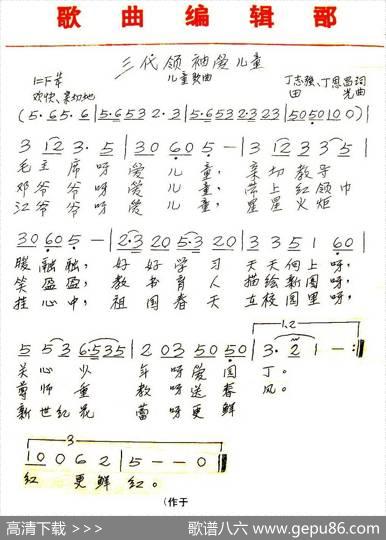 歌曲编辑部
三代领袖爱儿童
儿童歌曲
1=F 2/4
丁志强、丁恩昌词
欢快、亲切地
田 光曲
(5·6 5·6 | 5·6 5 3 2·3 | 5·6 5 3 2·3 2 3 | 5 0 5 0 1 0 0) |
3 1 2 3· 5 | 3 0 6 0 5 - | 3 1 2 3 3 5 |
毛主席呀爱儿童,亲切教导
邓爷爷呀爱儿童,带上红领巾
江爷爷呀爱儿童,星星火炬
3 0 6 0 5 - | 2·3 2 0 5·3 2 0 | 3 3 5 1 6 0 |
暖融融,好好学习天天向上呀,
笑盈盈,教书育人描绘新图呀,
挂心中,祖国春天立校园里呀,
1.2
5 5 3 6·5 3 5 | 2 0 3 5 0 5 0 | 3· 2 1 - :||
关心少年呀爱国丁。
尊师重教呀送春风。
新世纪花蕾呀更鲜
3
1 0 0 6 2 | 5 - - 0 ||
红更鲜红。
(作于
高清下载 >>>
歌谱八六 www.gepu86.com